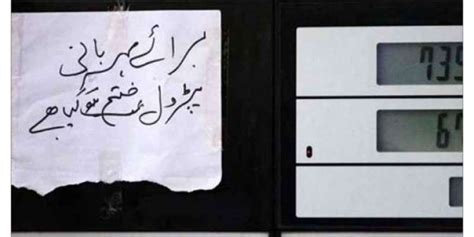 برائے مہربانی
پٹرول ختم ہوگیا ہے
735
67